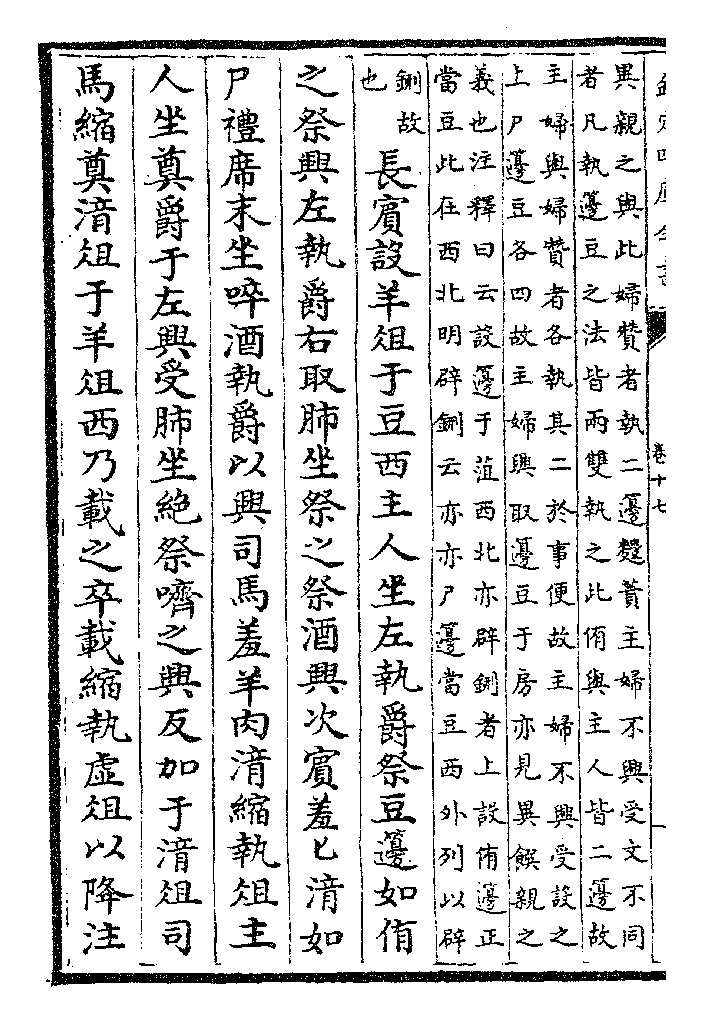 欽定四庫全書
卷十七
異親之與此婦贊者執二籩麷蕡主婦不興受文不同
者凡執籩豆之法皆兩雙執之此侑與主人皆二籩故
主婦與婦贊者各執其二於事便故主婦不興受設之
上尸籩豆各四故主婦興取籩豆于房亦見異餕親之
義也注釋曰云設籩于菹西北亦辟鉶者上設侑籩正
當豆此在西北明辟鉶云亦亦尸籩當豆西外列以辟
鉶故
也
長賓設羊俎于豆西主人坐左執爵祭豆籩如侑
之祭興左執爵右取肺坐祭之祭酒興次賓羞匕湆如
尸禮席末坐啐酒執爵以興司馬羞羊肉湆縮執俎主
人坐奠爵于左興受肺坐絶祭嚌之興反加于湆俎司
馬縮奠湆俎于羊俎西乃載之卒載縮執虛俎以降注